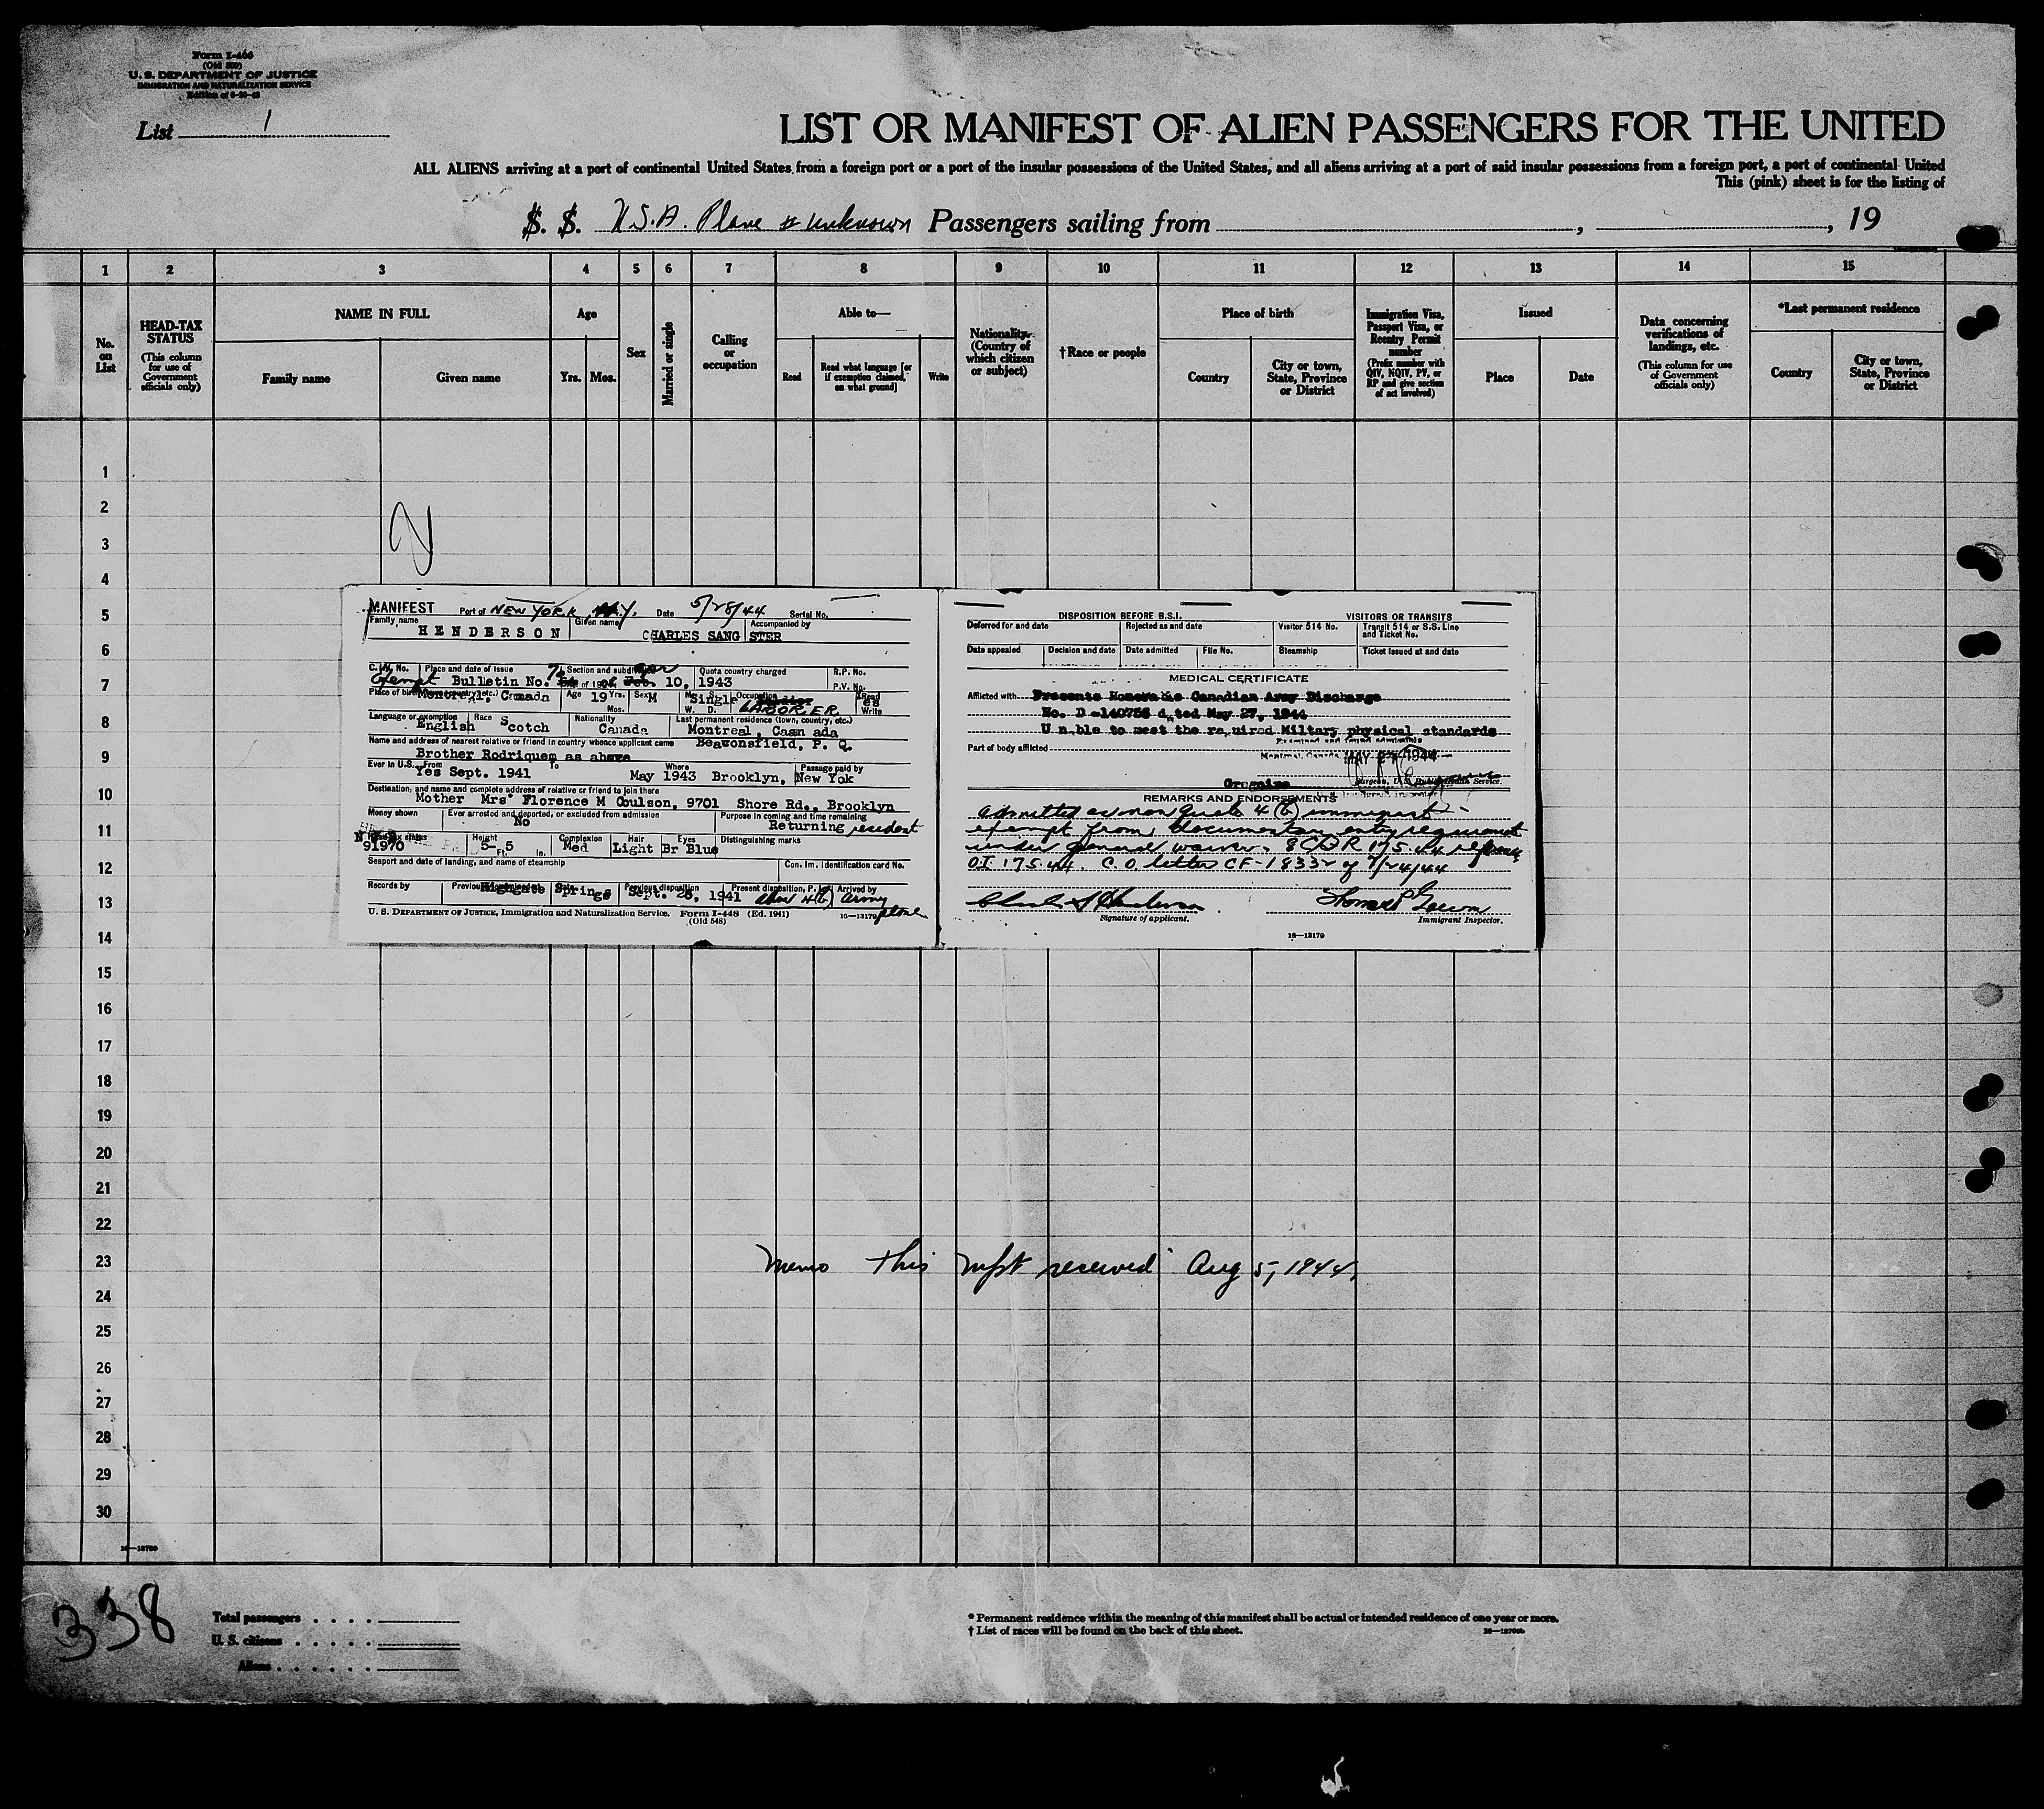 Form I-466
(Old 500)
U. S. DEPARTMENT OF JUSTICE
IMMIGRATION AND NATURALIZATION SERVICE
List 1
LIST OR MANIFEST OF ALIEN PASSENGERS FOR THE UNITED
ALL ALIENS arriving at a port of continental United States from a foreign port or a port of the insular possessions of the United States, and all aliens arriving at a port of said insular possessions from a foreign port, a port of continental United
This (pink) sheet is for the listing of
S. S. U.S.A. Plane # unknown Passengers sailing from , , 19
1 2 3 4 5 6 7 8 9 10 11 12 13 14 15
No. on List
HEAD-TAX STATUS
(This column for use of Government officials only)
NAME IN FULL
Family name Given name
Age
Yrs. Mos.
Sex
Married or single
Calling or occupation
Able to—
Read Read what language [or if exemption claimed, on what ground] Write
Nationality (Country of which citizen or subject)
†Race or people
Place of birth
Country City or town, State, Province or District
Immigration Visa, Passport Visa, or Reentry Permit number
(Prefix number with QIV, NQIV, PV, or RP and give section of act involved)
Issued
Place Date
Data concerning verifications of landings, etc.
(This column for use of Government officials only)
*Last permanent residence
Country City or town, State, Province or District
1
2
3
4
5
6
7
8
9
10
11
12
13
14
15
16
17
18
19
20
21
22
23
24
25
26
27
28
29
30
MANIFEST Port of NEW YORK, N.Y. Date 5/28/44 Serial No.
Family name Given name Accompanied by
HENDERSON CHARLES SANG STER
Place and date of issue Section and subdivision Quota country charged R.P. No.
Exempt Bulletin No. 10, 1943
P.V. No.
Montreal, Canada Age 19 Yrs. Mos. Sex M Single W. D. Occupation LABORER Read Write
Language or exemption Race Nationality Last permanent residence (town, country, etc.)
English Scotch Canada Montreal, Caan ada
Name and address of nearest relative or friend in country whence applicant came Beawonsfield, P. Q.
Brother Rodriquem as above
Ever in U.S. From To Where Passage paid by
Yes Sept. 1941 May 1943 Brooklyn, New Yok
Destination, and name and complete address of relative or friend to join there
Mother Mrs Florence M Coulson, 9701 Shore Rd., Brooklyn
Money shown Ever arrested and deported, or excluded from admission Purpose in coming and time remaining
No Returning resident
Height Complexion Hair Eyes Distinguishing marks
91970 5 Ft. 5 In. Med Light Br Blue
Seaport and date of landing, and name of steamship Con. Im. Identification card No.
Records by Previously Previous disposition Present disposition, Arrived by
Highgate Springs Sept. 28, 1941 4(b) Army plane
U. S. DEPARTMENT OF JUSTICE, Immigration and Naturalization Service. Form I-448 (Ed. 1941) 16—13179
(Old 548)
DISPOSITION BEFORE B.S.I. VISITORS OR TRANSITS
Deferred for and date Rejected as and date Visitor 514 No. Transit 514 or S.S. Line and Ticket No.
Date appealed Decision and date Date admitted File No. Steamship Ticket issued at and date
MEDICAL CERTIFICATE
Afflicted with Presents Honorable Canadian Army Discharge
No. D-140756 dated May 27, 1944
U nable to meet the required Miltary physical standards
Part of body afflicted
Montreal, Canada MAY 27 1944
Surgeon, U.S. Public Health Service.
REMARKS AND ENDORSEMENTS
Admitted as non quota 4(b) immigrant
exempt from documentary entry requirement
under general waiver. 8 CFR 175.44 reference
O.I 175.44. C.O. letter CF-18332 of 7/24/44
Signature of applicant. Immigrant Inspector.
16—13179
Memo This mfst received Aug 5, 1944
338
Total passengers
U. S. citizens
Aliens
* Permanent residence within the meaning of this manifest shall be actual or intended residence of one year or more.
† List of races will be found on the back of this sheet.